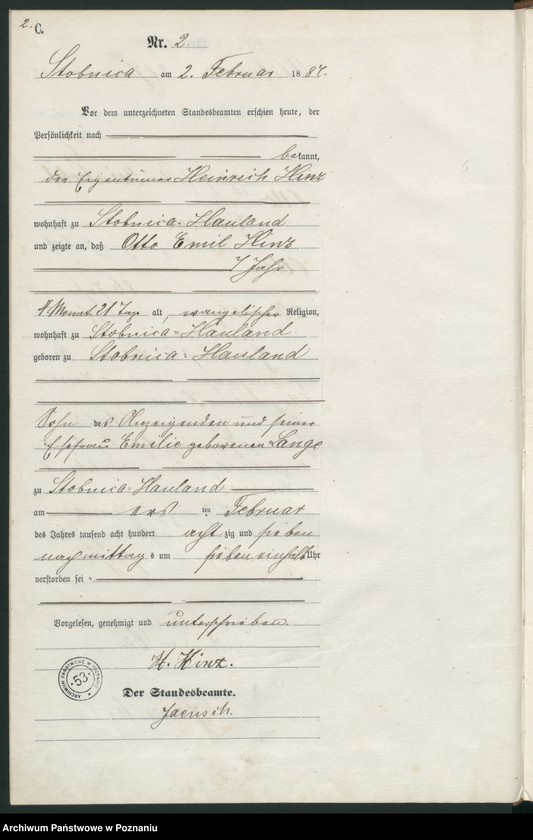 2.
C.
Nr. 2.
Stobnica am 2. Februar 1887.
Vor dem unterzeichneten Standesbeamten erschien heute, der
Persönlichkeit nach
bekannt,
der Eigentümer Heinrich Hinz
wohnhaft zu Stobnica-Hauland
und zeigte an, daß Otto Emil Hinz
7 Jahr
4 Monat 21 Tage alt, evangelischer Religion,
wohnhaft zu Stobnica-Hauland
geboren zu Stobnica-Hauland
Sohn des Anzeigenden und seiner
Ehefrau Emilie geborenen Lange
zu Stobnica-Hauland
am ersten Februar
des Jahres tausend acht hundert achtzig und sieben
nachmittags um sieben einhalb Uhr
verstorben sei.
Vorgelesen, genehmigt und unterschrieben
H. Hinz.
Der Standesbeamte.
Jaensch.
ARCHIWUM PAŃSTWOWE W POZNANIU
53
Archiwum Państwowe w Poznaniu